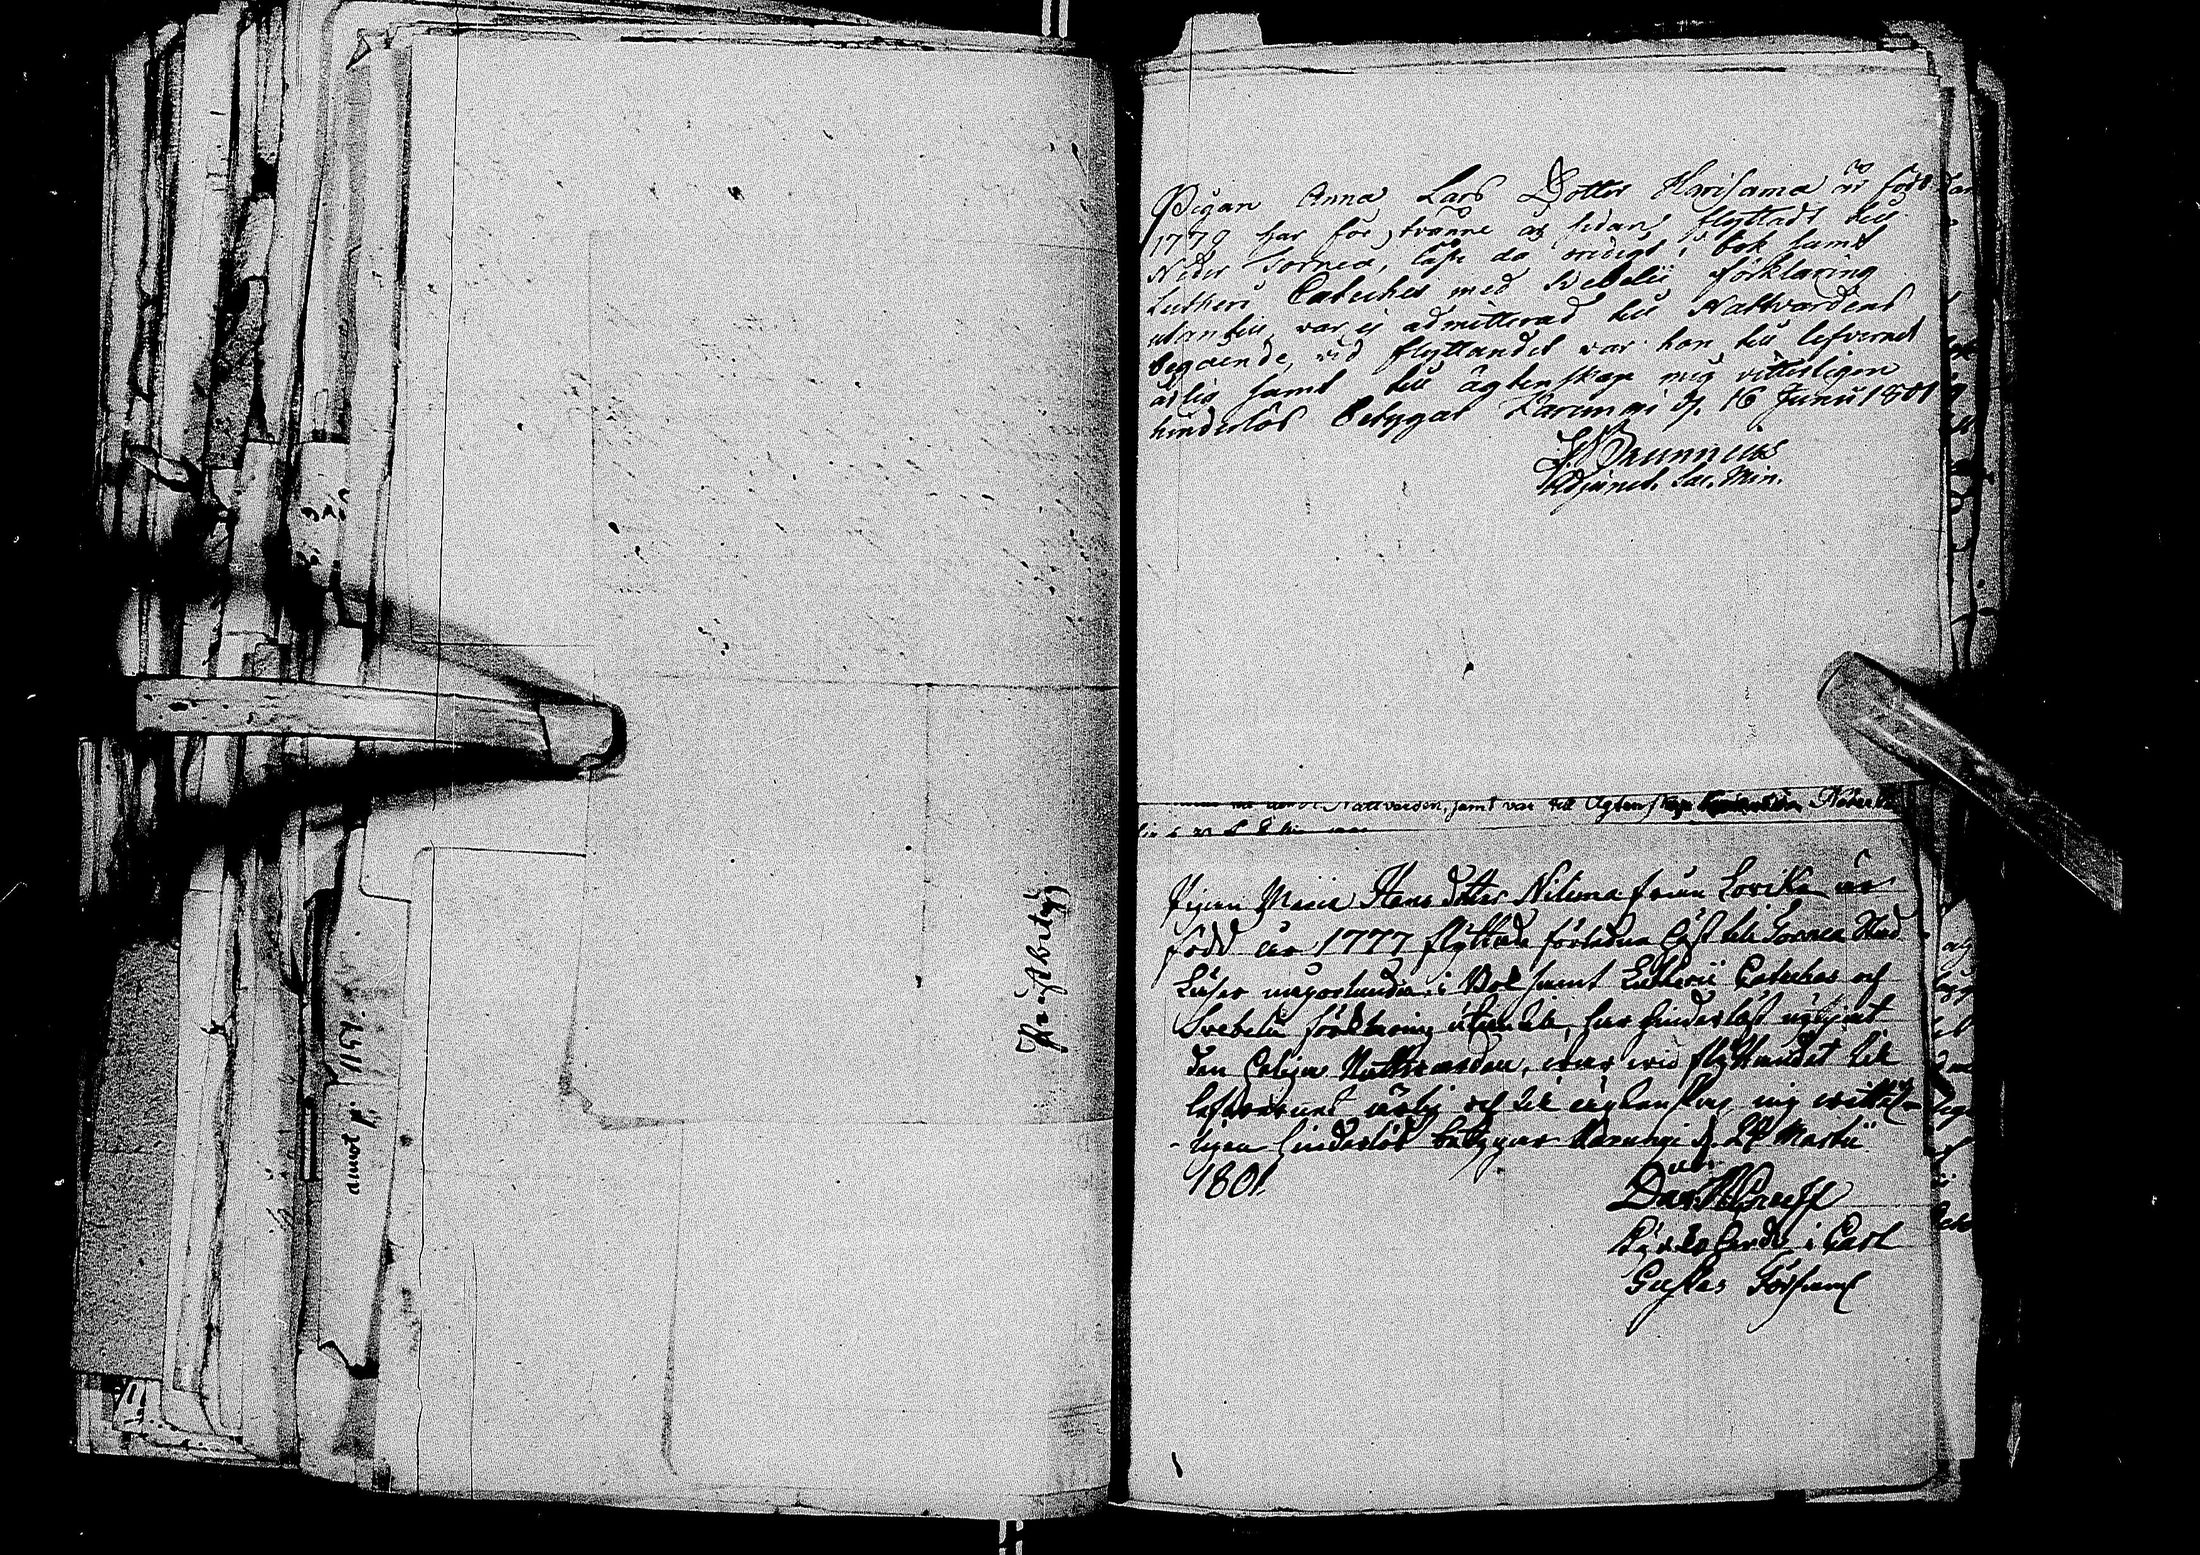 Pigan Anna Lars Dotter Harisama är född
1779 har för tvänne år sedan flyttadt till
Neder Torneå, läste då ordigt i bok samt
Lutheri Cateches med Svebelii förklaring
utantill, var ej admitterad till Nattvardens
begående, vid flyttandet var hon till lefvernet
ärlig samt till ägtenskap mig vitterligen
hinderlös betygar Karungi d. 16 Junii 1801
Brunnius
Adjunct. Sac. Min.
Nattvarden, samt var till Ägtenskap
Pigan Maria Hans dotter Niluna från Lovika är
född år 1777 flyttade förledne höst till Torneå Stad
Läser någorlunda i Bok samt Lutherii Cateches och
Svebelii förklaring utantill, har hinderlöst
den heliga Nattvarden, war wid flyttandet till
lefvernet ärlig och till ägtenskap mig witter-
-ligen hinderlös betygar Karungi d. Martii
1801.
Kyrkoherde i Carl
Gustavs Församl
Präst betyg
annot p. 1159.